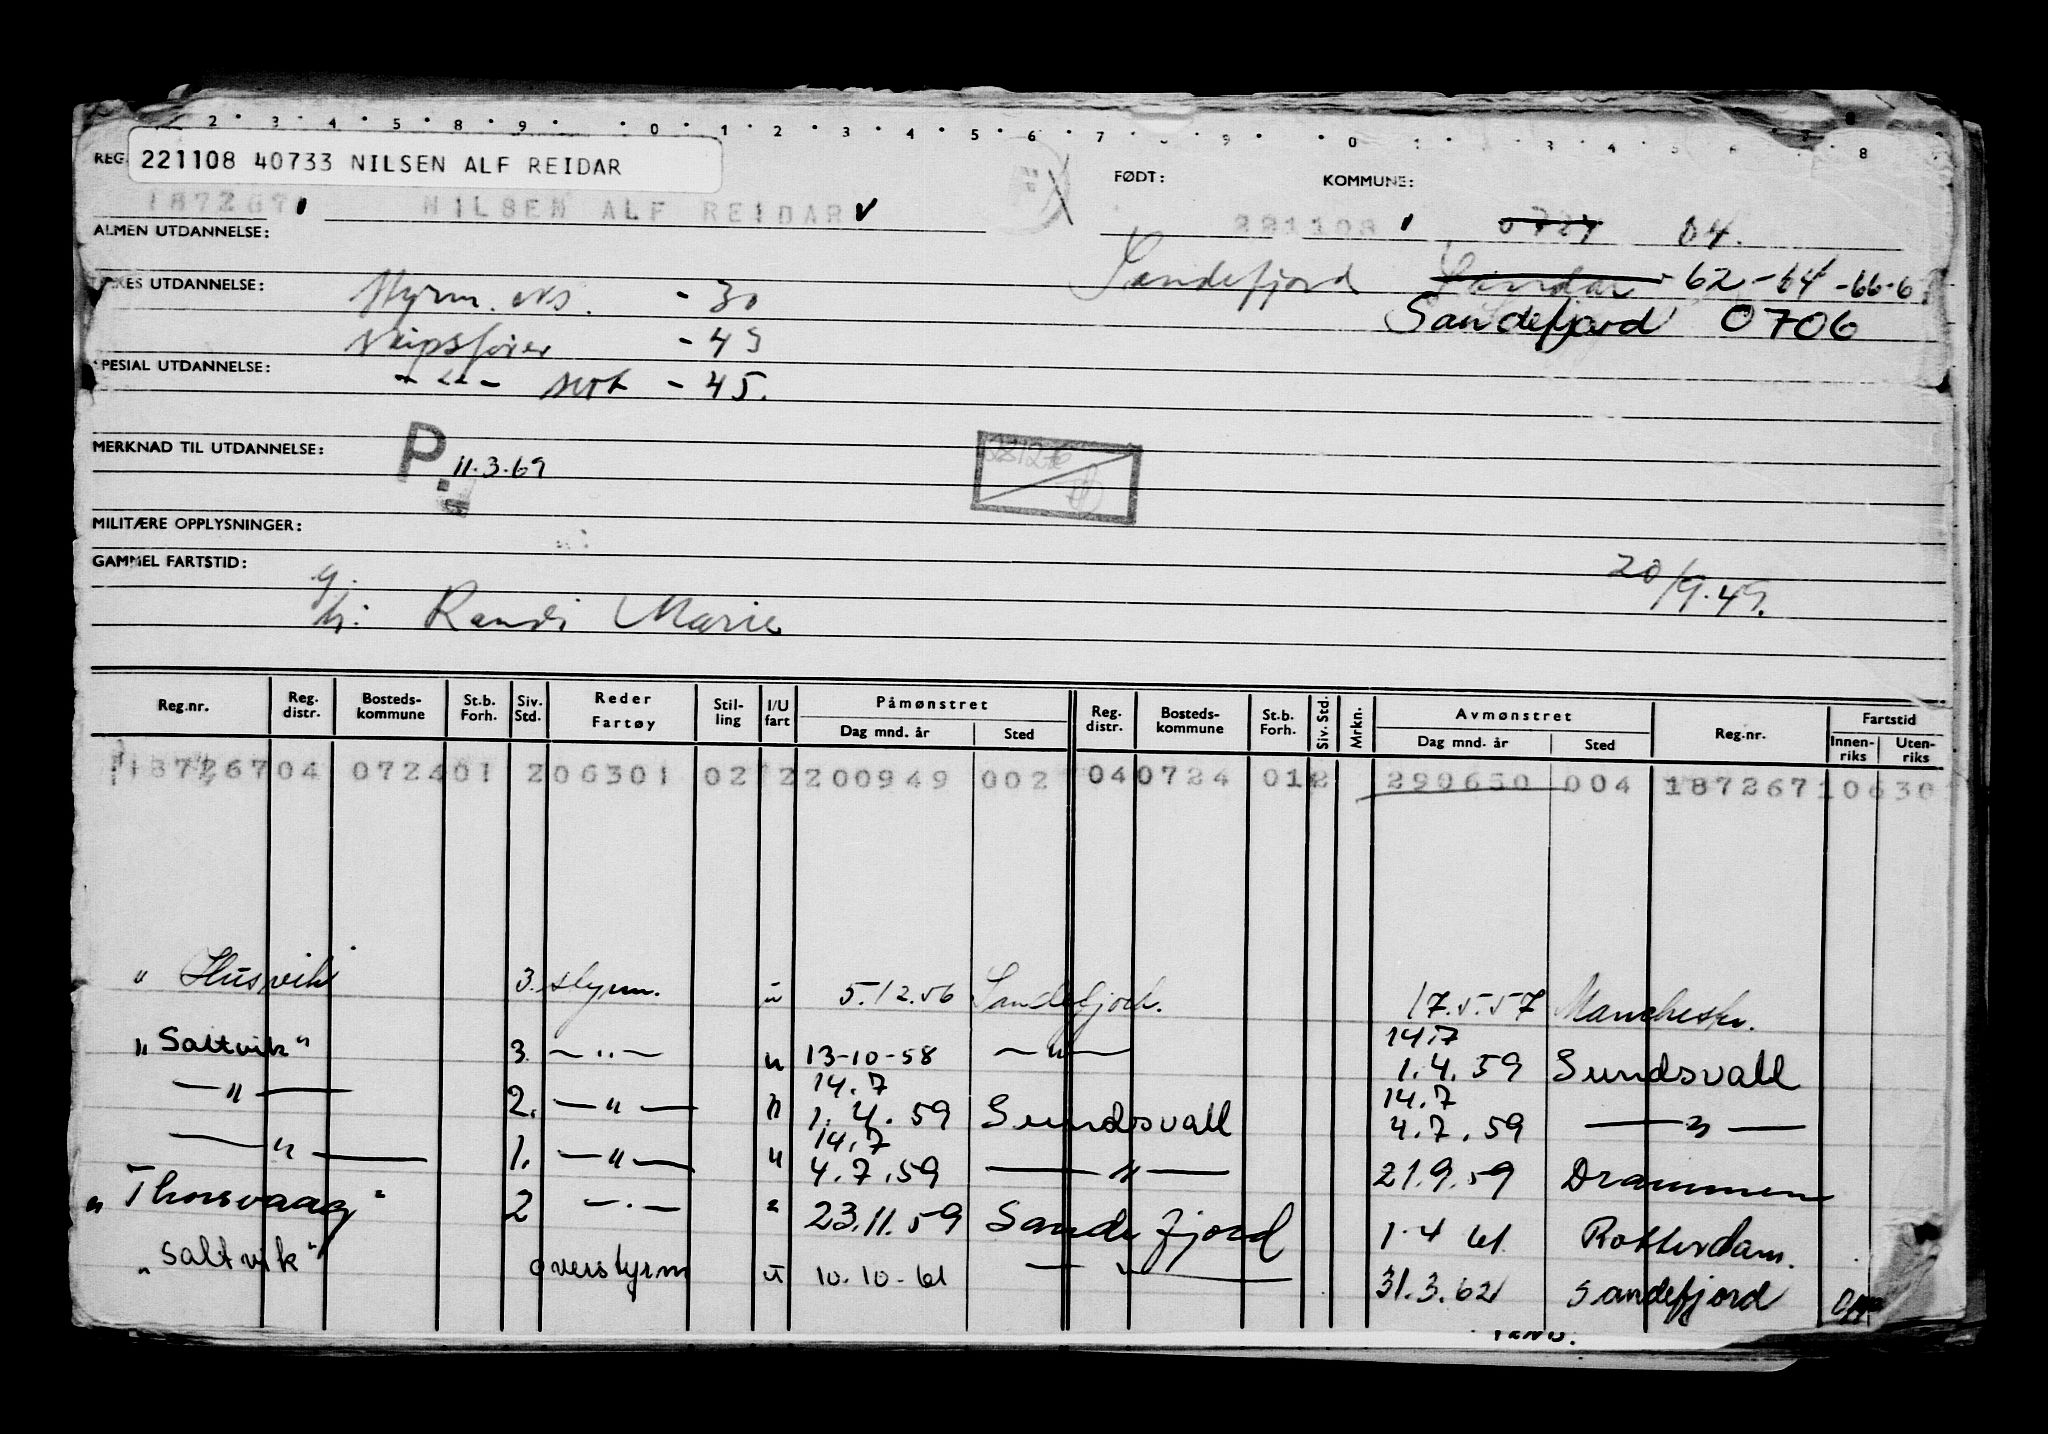 2 3 4 5 8 9 0 1 2 3 4 5 6 7 9 0 1 3 4 8
REG. 221108 40733 NILSEN ALF REIDAR
FØDT: KOMMUNE:
187267 NILSEN ALF REIDAR 221108 0724 04.
ALMEN UTDANNELSE:
Sandefjord Sandar - 62 - 64 - 66 - 6
UTDANNELSE: Styrm. eks. - 30
Sandefjord 0706
Skipsfører - 43
SPESIAL UTDANNELSE: - " - sert - 45.
MERKNAD TIL UTDANNELSE: P. 11.3.69
MILITÆRE OPPLYSNINGER:
GAMMEL FARTSTID: g. 20/9.49.
h: Randi Marie
Reg.nr. Reg. distr. Bosteds-kommune St.b. Forh. Siv. Std. Reder Fartøy Stil-ling I/U fart Påmønstret Dag mnd. år Sted Reg. distr. Bosteds-kommune St.b. Forh. Siv. Std. Mrkn. Avmønstret Dag mnd. år Sted Reg.nr. Fartstid Innen-riks Uten-riks
187267 04 0724 01 2 06301 02 2 200949 002 04 0724 01 2 290650 004 187267 10630
" Husvik 3. styrm. u 5.12.56 Sandefjord. 17.5.57 Manchester.
14.7
" Saltvik " 3. — " — u 13-10-58 — " — 1.4.59 Sundsvall
14.7 14.7
— " — 2. — " — " 1.4.59 Sundsvall 4.7.59 — " —
14.7
— " — 1. — " — " 4.7.59 — " — 21.9.59 Drammen
" Thorsvaag " 2 — " — " 23.11.59 Sandefjord 1-4 61. Rotterdam.
" Saltvik " overstyrm u 10.10-61 — " — 31.3.62 Sandefjord